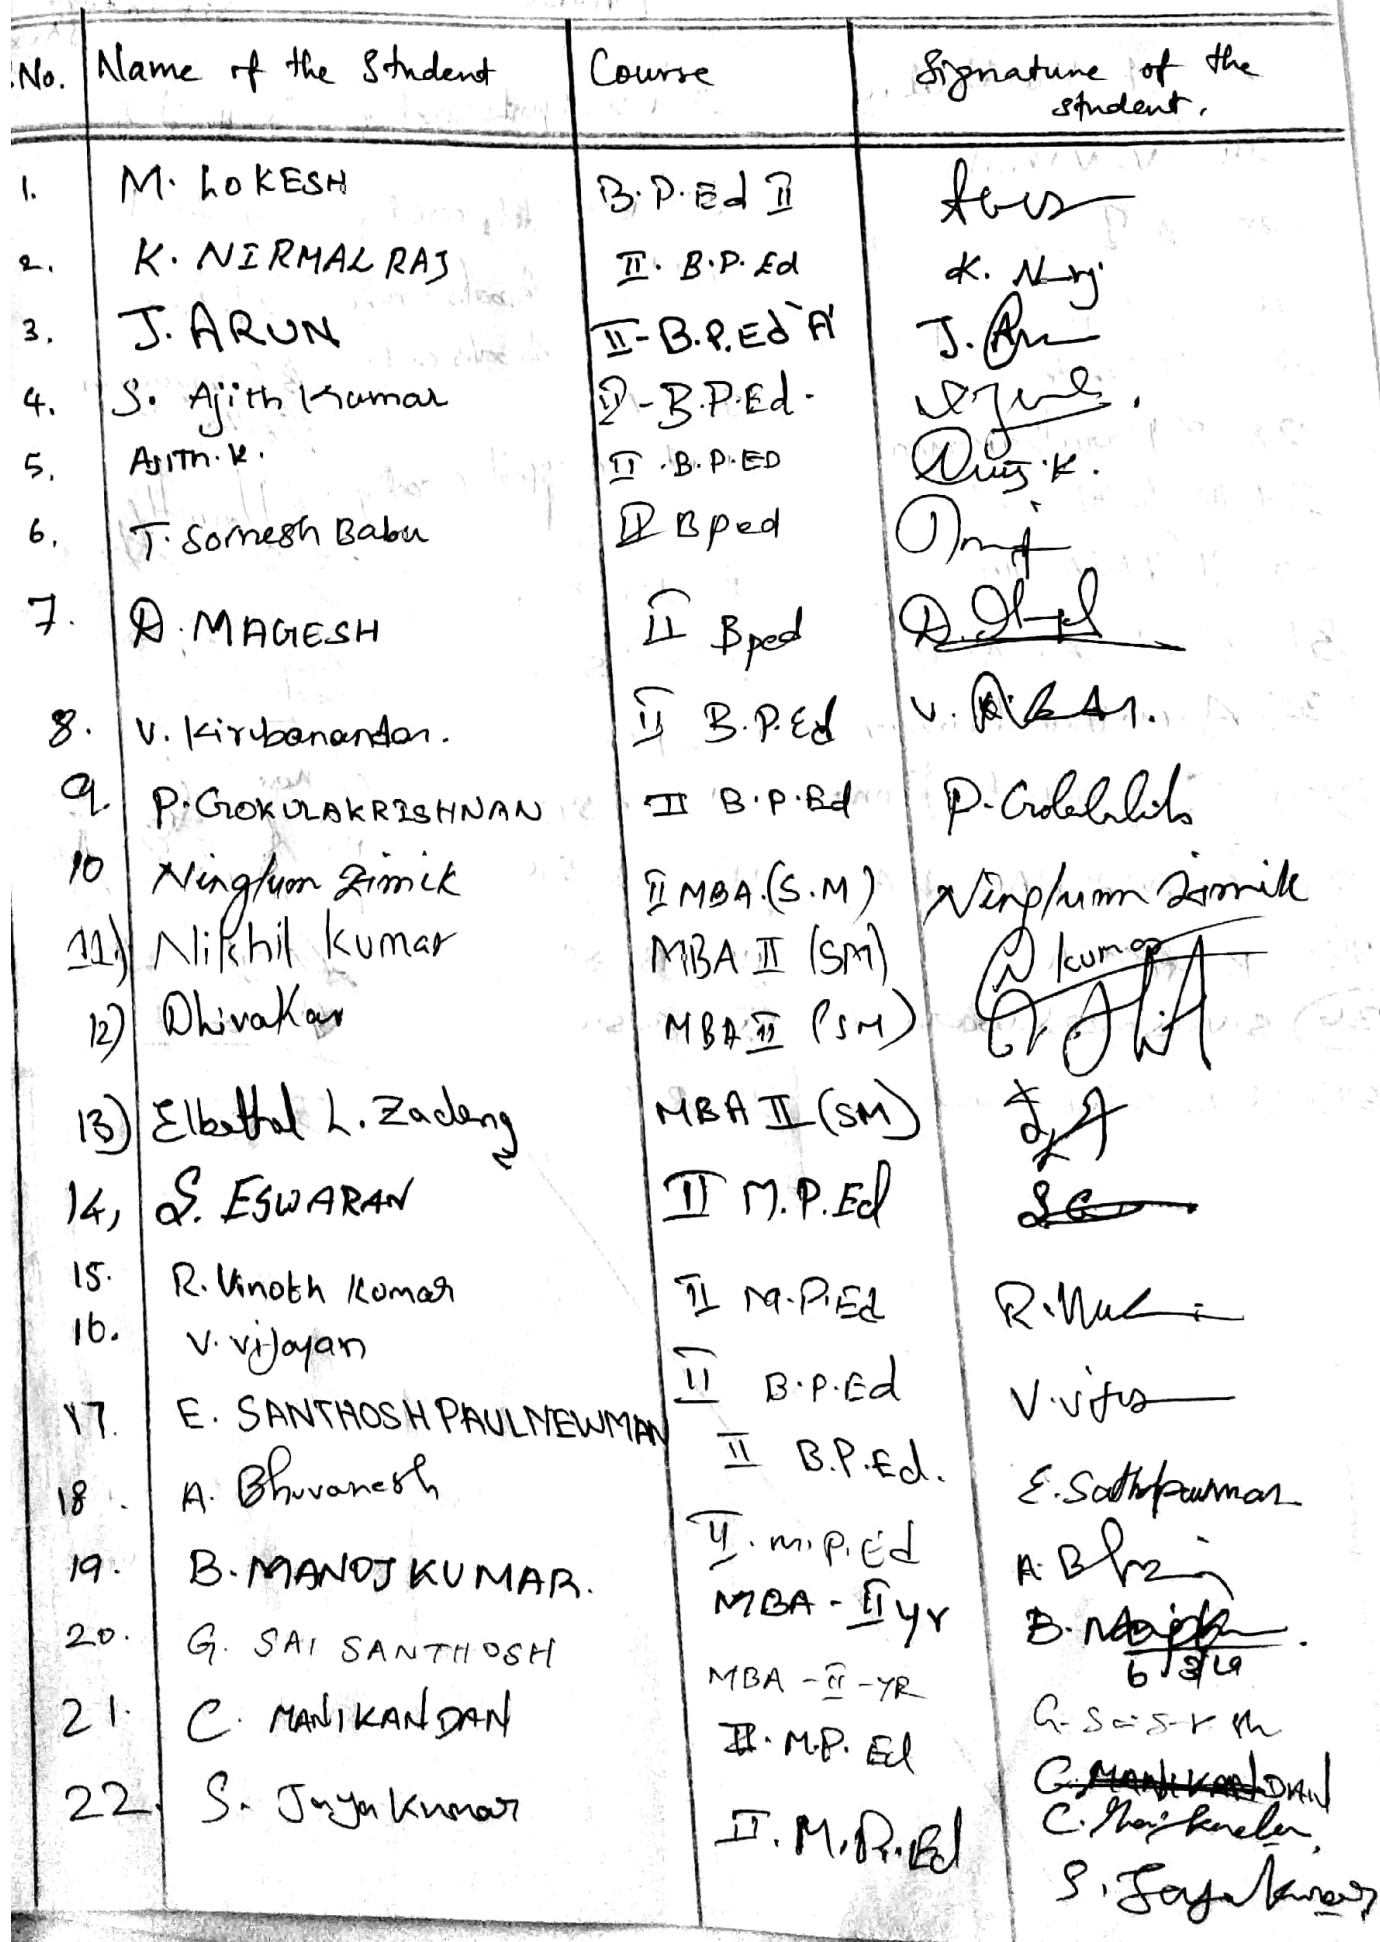 No. Name of the Student Course Signature of the
student.
1. M. LOKESH B.P.Ed II
2. K. NIRMALRAJ II. B.P. Ed K.
3. J. ARUN II-B.P.Ed 'A' J.
4. S. Ajith Kumar II-B.P.Ed.
5. AJITH. K. II.B.P.ED K.
6. T. Somesh Babu II Bped
7. D. MAGESH II Bped D.
8. V. Kirubanandan. II B.P.Ed V.
9. P. GOKULAKRISHNAN II B.P.Ed P.
10 Ninglum Zimik II MBA.(S.M) Ninglumm Zimik
11) Nikhil Kumar MBA II (SM) kumar
12) Dhivakar MBA II (SM)
13) L. Zadeng MBA II (SM)
14, S. ESWARAN II M.P.Ed
15. R. Vinoth Kumar II M.P.Ed R.
16. V. Vijayan II B.P.Ed V.
17. E. SANTHOSH PAULNEWMAN II B.P.Ed. E.
18. A. Bhuvanesh II. M.P.Ed A.
19. B. MANOJ KUMAR. MBA - II yr B.
20. G. SAI SANTHOSH MBA - II - YR G.
21. C. MANIKANDAN II. M.P. Ed C. MANIKANDAN
C.
22. S. Jaya Kumar II. M.P.Ed S. Jayakumar